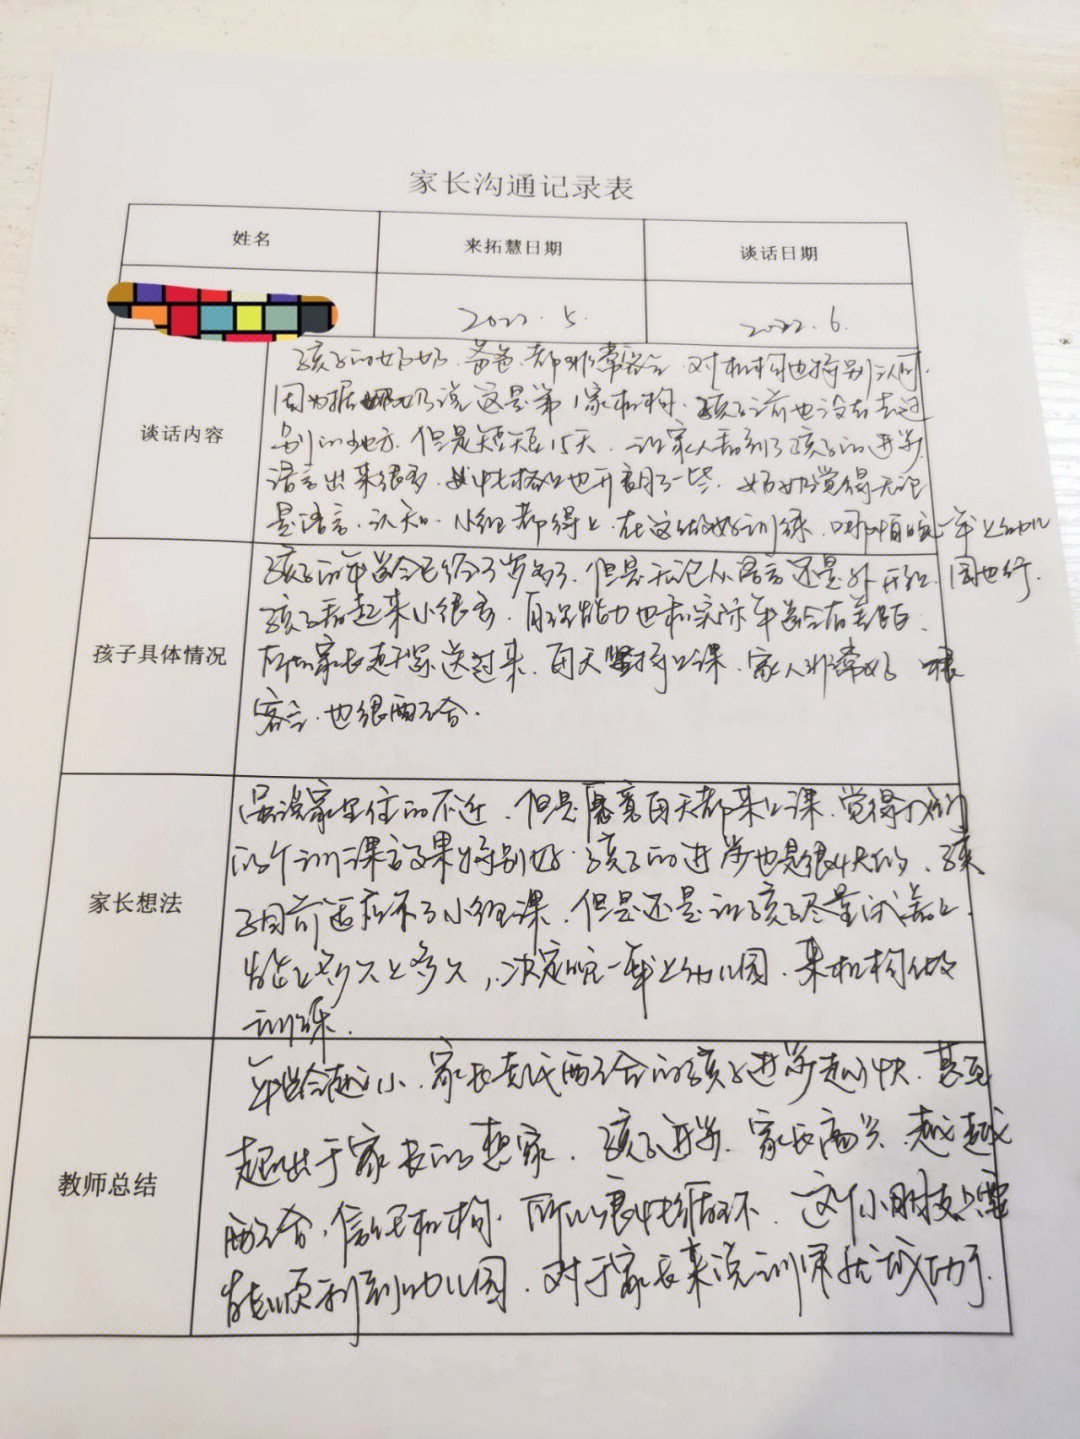 家长沟通记录表
姓名 来拓慧日期 谈话日期
2022.5. 2022.6.
谈话内容
孩子的奶奶、爸爸、都非常客气 对机构也特别认可.
因为据奶奶说这是第1家机构、孩子之前也没有去过
别的地方. 但是短短15天. 让家人看到了孩子的进步
语言出来很多. 性格也开朗了一些. 奶奶觉得无论
是语言、认知、小组都得上. 在这做好训练. 哪怕晚一年上幼儿
园也行.
孩子具体情况
孩子的年龄已经3岁多了. 但是无论从语言还是外形上.
孩子看起来小很多. 自理能力也和实际年龄有差距.
所以家长赶紧送过来. 每天坚持上课. 家人非常好 很
客气. 也很配合.
家长想法
虽说家里住的不近. 但是愿意每天都来上课. 觉得我们
的个训课言效果特别好. 孩子的进步也是很快的. 孩
子目前适应不了小组课. 但是还是让孩子尽量
能上多久上多久, 决定晚一年上幼儿园. 来机构做
训练.
教师总结
年龄越小. 家长越配合的孩子进步越快. 甚至
超出于家长的想象. 孩子进步. 家长高兴. 越越
配合. 信任机构. 所以良性循环. 这个小朋友只要
能顺利到幼儿园. 对于家长来说训练就成功了.